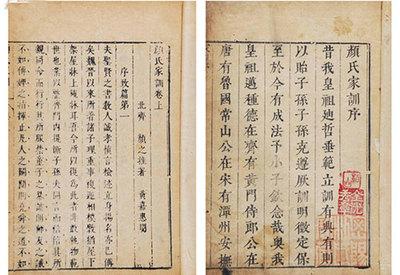 顔氏家訓序
昔我皇祖廸哲垂範立訓有典有則
以貽子孫子孫克遵厥訓明徵定保
至於今有成法予小子欽念哉奥我
皇祖邁種德在齊有黃門侍郎公在
唐有魯國常山公在宋有潭州安撫
顔氏家訓卷上
北齊 顔之推著 黃嘉惠閱
序教篇第一
夫聖賢之書教人誠孝慎言檢迹立身揚名亦已備
矣魏晉以來所著諸子理重事複遞相模斆猶屋下
架屋牀上施牀耳吾今所以復爲此者非敢軌物範
世也業以整齊門內提撕子孫夫同言而信信其所
親同命而行行其所服禁童子之暴謔則師友之誡
不如傅婢之指揮止凡人之鬬鬩則堯舜之道不如